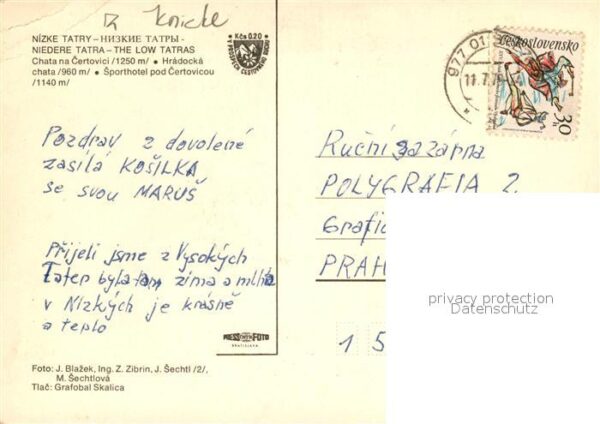 Knicke
NÍZKE TATRY – НИЗКИЕ ТАТРЫ –
NIEDERE TATRA – THE LOW TATRAS
Chata na Čertovici /1250 m/ ● Hrádocká
chata /960 m/ ● Športhotel pod Čertovicou
/1140 m/
Kčs 0.20
Pozdrav z dovolené
zasílá KOŠILKA
se svou MARUŠ
Přijeli jsme z Vysokých
Tater byla tam zima a mlha
v Nízkých je krásně
a teplo
PRESSFOTO
BRATISLAVA
Foto: J. Blažek, Ing. Z. Zibrin, J. Šechtl /2/,
M. Šechtlová
Tlač: Grafobal Skalica
977 01
11.7.79
Československo
30
Ruční sazárna
POLYGRAFIA 2
Grafic
PRAH
1 5
privacy protection
Datenschutz